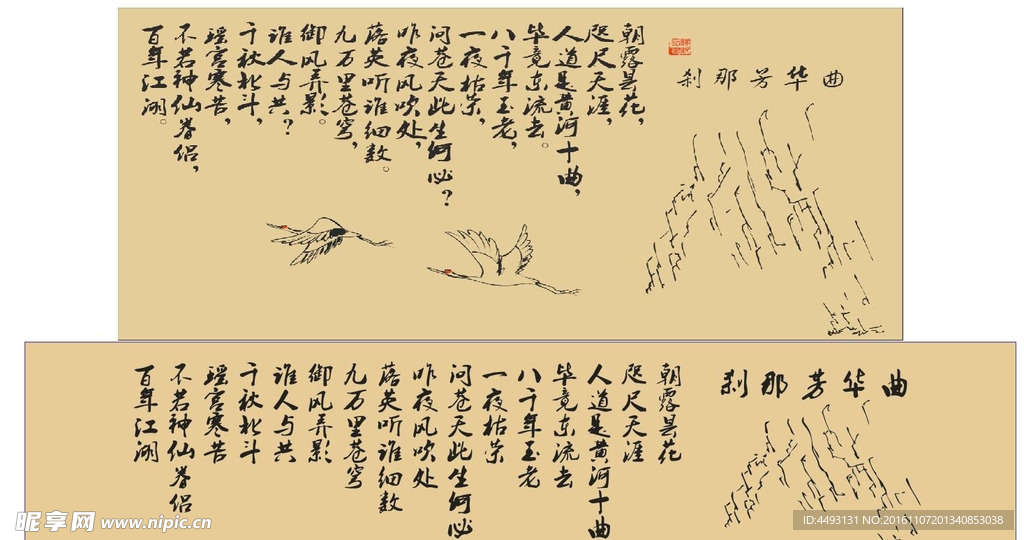 刹那芳华曲
朝露昙花，
咫尺天涯，
人道是黄河十曲，
毕竟东流去。
八千年玉老，
一夜枯荣，
问苍天此生何必？
昨夜风吹处，
落英听谁细数。
九万里苍穹，
御风弄影。
谁人与共？
千秋北斗，
瑶宫寒苦，
不若神仙眷侣，
百年江湖。
刹那芳华曲
朝露昙花
咫尺天涯
人道是黄河十曲
毕竟东流去
八千年玉老
一夜枯荣
问苍天此生何必
昨夜风吹处
落英听谁细数
九万里苍穹
御风弄影
谁人与共
千秋北斗
瑶宫寒苦
不若神仙眷侣
百年江湖
昵享网 www.nipic.cn
ID:4493131 NO:20161107201340853038